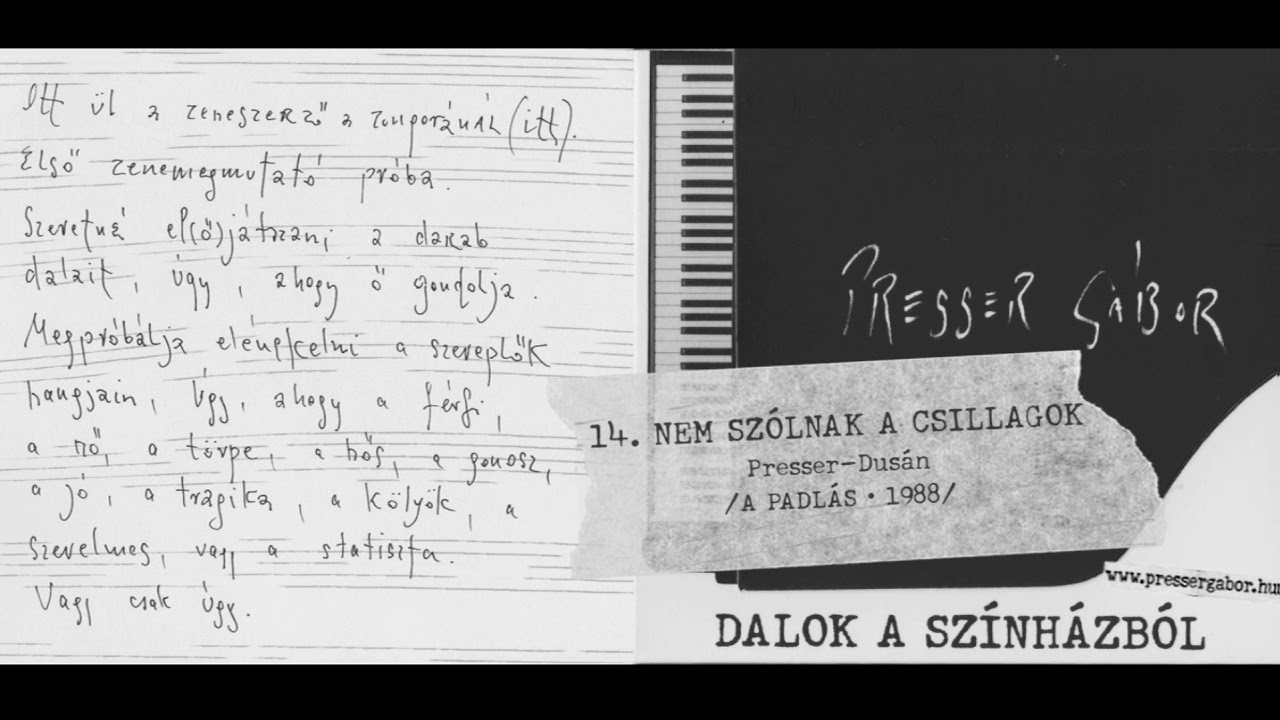 Itt ül a zeneszerző a zongoránál (itt).
Első zenemegmutató próba.
Szeretné el(ő)játszani a darab
dalait, úgy, ahogy ő gondolja.
Megpróbálja elénekelni a szereplők
hangjain, úgy, ahogy a férfi,
a nő, a törpe, a hős, a gonosz,
a jó, a tragika, a kölyök, a
szerelmes, vagy a statiszta.
Vagy csak úgy.
PRESSER GÁBOR
14. NEM SZÓLNAK A CSILLAGOK
Presser-Dusán
/A PADLÁS • 1988/
www.pressergabor.hu
DALOK A SZÍNHÁZBÓL